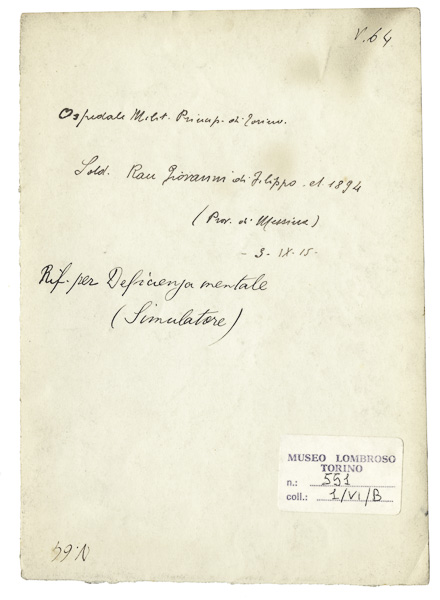 V.64
Ospedale Milit. Princip. di Torino.
Sold. Rau Giovanni di Filippo. cl 1894
(Prov. di Messina)
- 3. IX. 15.
Rif. per Deficienza mentale
(Simulatore)
MUSEO LOMBROSO
TORINO
n.: 551
coll.: 1/VI/B
V.64